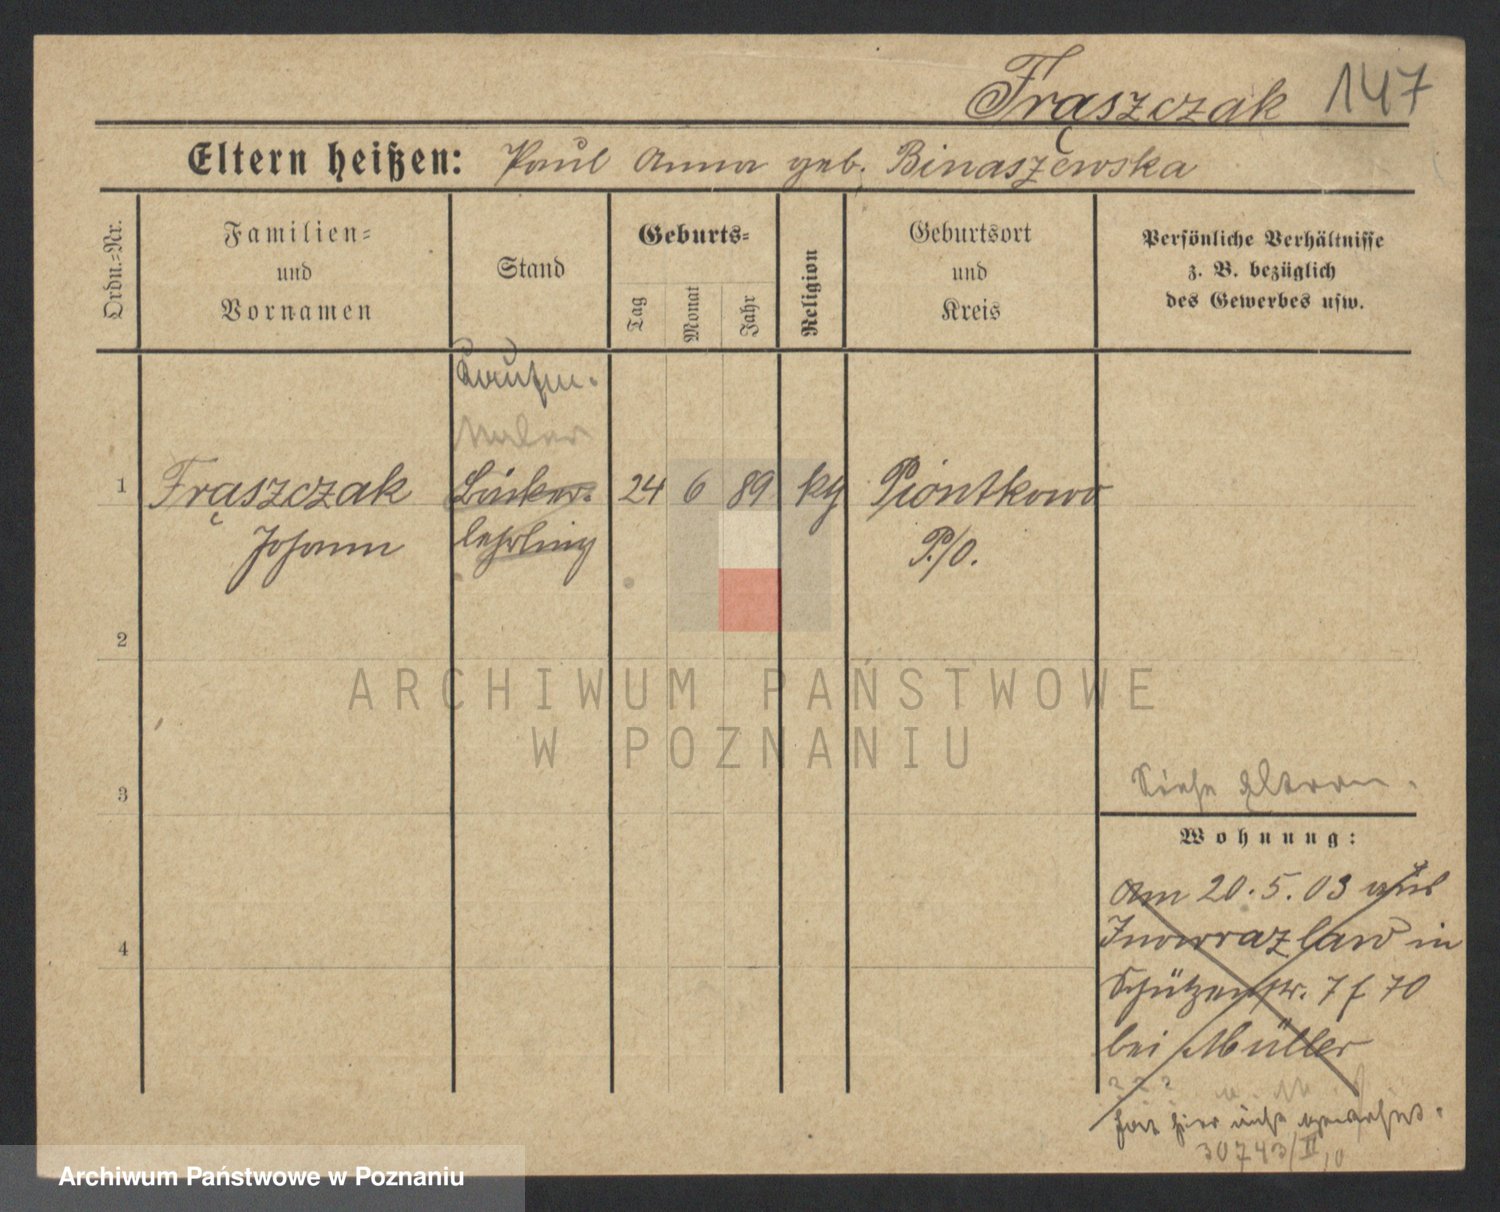 Frąszczak 147
Eltern heißen: Paul Anna geb. Binaszewska
Ordn.-Nr.
Familien-
und
Vornamen
Stand
Geburts-
Tag
Monat
Jahr
Religion
Geburtsort
und
Kreis
Persönliche Verhältnisse
z. B. bezüglich
des Gewerbes usw.
Kaufm.
Maler
1 Frąszczak Bäcker- 24 6 89 kth Piontkowo
Johann lehrling P./O.
2
3
4
Siehe Eltern.
Wohnung:
Am 20.5.03 aus
Inowrazlaw in
Schützenstr. 7 f 70
bei Müller
? ? ?
hat hier nicht gewohnt.
30743/II 10
ARCHIWUM PAŃSTWOWE
W POZNANIU
Archiwum Państwowe w Poznaniu